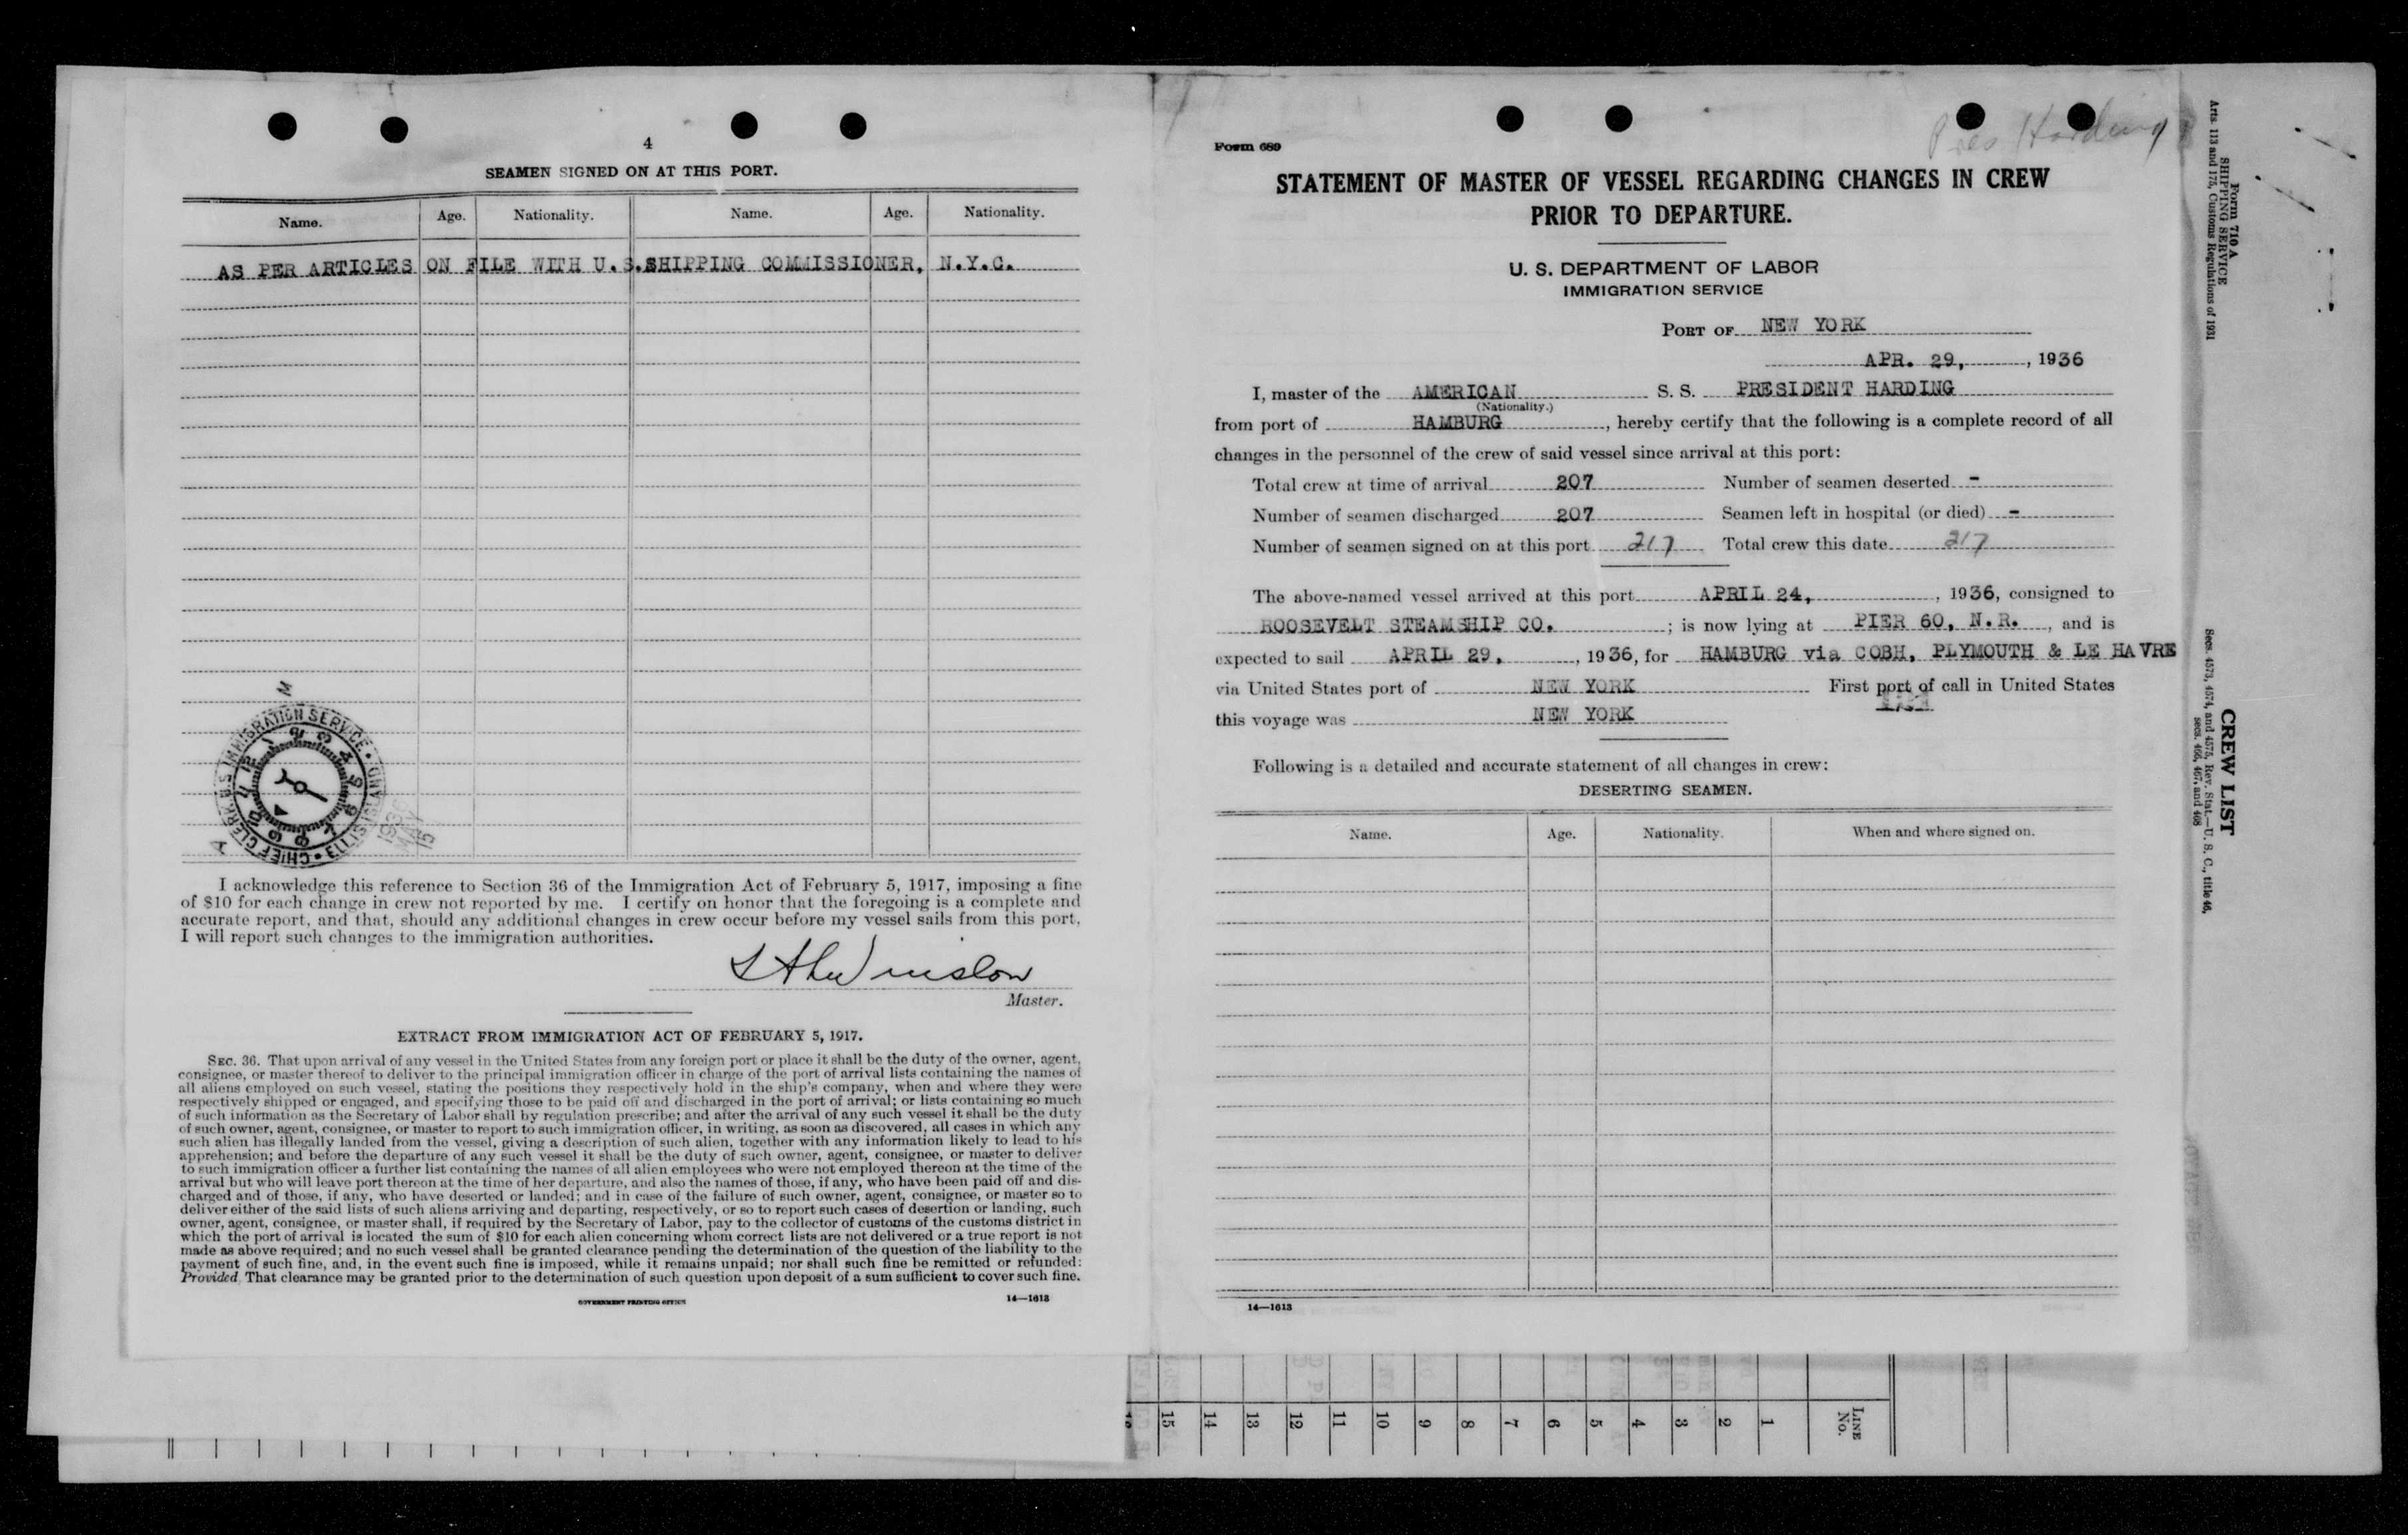 4
SEAMEN SIGNED ON AT THIS PORT.
Name. Age. Nationality. Name. Age. Nationality.
AS PER ARTICLES ON FILE WITH U.S.SHIPPING COMMISSIONER, N.Y.C.
M
CHIEF CLERK U.S IMMIGRATION SERVICE
1936
MAY
I acknowledge this reference to Section 36 of the Immigration Act of February 5, 1917, imposing a fine
of $10 for each change in crew not reported by me. I certify on honor that the foregoing is a complete and
accurate report, and that, should any additional changes in crew occur before my vessel sails from this port,
I will report such changes to the immigration authorities.
Winslow
Master.
EXTRACT FROM IMMIGRATION ACT OF FEBRUARY 5, 1917.
SEC. 36. That upon arrival of any vessel in the United States from any foreign port or place it shall be the duty of the owner, agent,
consignee, or master thereof to deliver to the principal immigration officer in charge of the port of arrival lists containing the names of
all aliens employed on such vessel, stating the positions they respectively hold in the ship's company, when and where they were
respectively shipped or engaged, and specifying those to be paid off and discharged in the port of arrival; or lists containing so much
of such information as the Secretary of Labor shall by regulation prescribe; and after the arrival of any such vessel it shall be the duty
of such owner, agent, consignee, or master to report to such immigration officer, in writing, as soon as discovered, all cases in which any
such alien has illegally landed from the vessel, giving a description of such alien, together with any information likely to lead to his
apprehension; and before the departure of any such vessel it shall be the duty of such owner, agent, consignee, or master to deliver
to such immigration officer a further list containing the names of all alien employees who were not employed thereon at the time of the
arrival but who will leave port thereon at the time of her departure, and also the names of those, if any, who have been paid off and dis-
charged and of those, if any, who have deserted or landed; and in case of the failure of such owner, agent, consignee, or master so to
deliver either of the said lists of such aliens arriving and departing, respectively, or so to report such cases of desertion or landing, such
owner, agent, consignee, or master shall, if required by the Secretary of Labor, pay to the collector of customs of the customs district in
which the port of arrival is located the sum of $10 for each alien concerning whom correct lists are not delivered or a true report is not
made as above required; and no such vessel shall be granted clearance pending the determination of the question of the liability to the
payment of such fine, and, in the event such fine is imposed, while it remains unpaid; nor shall such fine be remitted or refunded:
Provided, That clearance may be granted prior to the determination of such question upon deposit of a sum sufficient to cover such fine.
GOVERNMENT PRINTING OFFICE
14—1613
Pres Harding
Form 689
STATEMENT OF MASTER OF VESSEL REGARDING CHANGES IN CREW
PRIOR TO DEPARTURE.
U. S. DEPARTMENT OF LABOR
IMMIGRATION SERVICE
PORT OF NEW YORK
APR. 29, , 1936
I, master of the AMERICAN S. S. PRESIDENT HARDING
(Nationality.)
from port of HAMBURG , hereby certify that the following is a complete record of all
changes in the personnel of the crew of said vessel since arrival at this port:
Total crew at time of arrival 207 Number of seamen deserted -
Number of seamen discharged 207 Seamen left in hospital (or died) -
Number of seamen signed on at this port 217 Total crew this date 217
The above-named vessel arrived at this port APRIL 24, , 1936, consigned to
ROOSEVELT STEAMSHIP CO. ; is now lying at PIER 60, N.R. , and is
expected to sail APRIL 29, , 1936, for HAMBURG via COBH, PLYMOUTH & LE HAVRE
via United States port of NEW YORK First port of call in United States
this voyage was NEW YORK
Following is a detailed and accurate statement of all changes in crew:
DESERTING SEAMEN.
Name. Age. Nationality. When and where signed on.
14—1613
Form 710 A
SHIPPING SERVICE
Arts. 113 and 175, Customs Regulations of 1931
CREW LIST
Secs. 4573, 4574, and 4575, Rev. Stat.—U. S. C., title 46,
secs. 466, 467, and 468
15 14 13 12 11 10 9 8 7 6 5 4 3 2 1 LINE No.